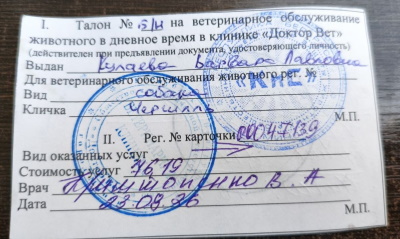 I. Талон № Б/Н на ветеринарное обслуживание
животного в дневное время в клинике «Доктор Вет»
(действителен при предъявлении документа, удостоверяющего личность)
Выдан Варвара Павловна
Для ветеринарного обслуживания животного рег. №
Вид собака
Кличка Черчилль
М.П.
II. Рег. № карточки 00047139
Вид оказанных услуг
Стоимость услуг 7619
Врач В. А
Дата
М.П.